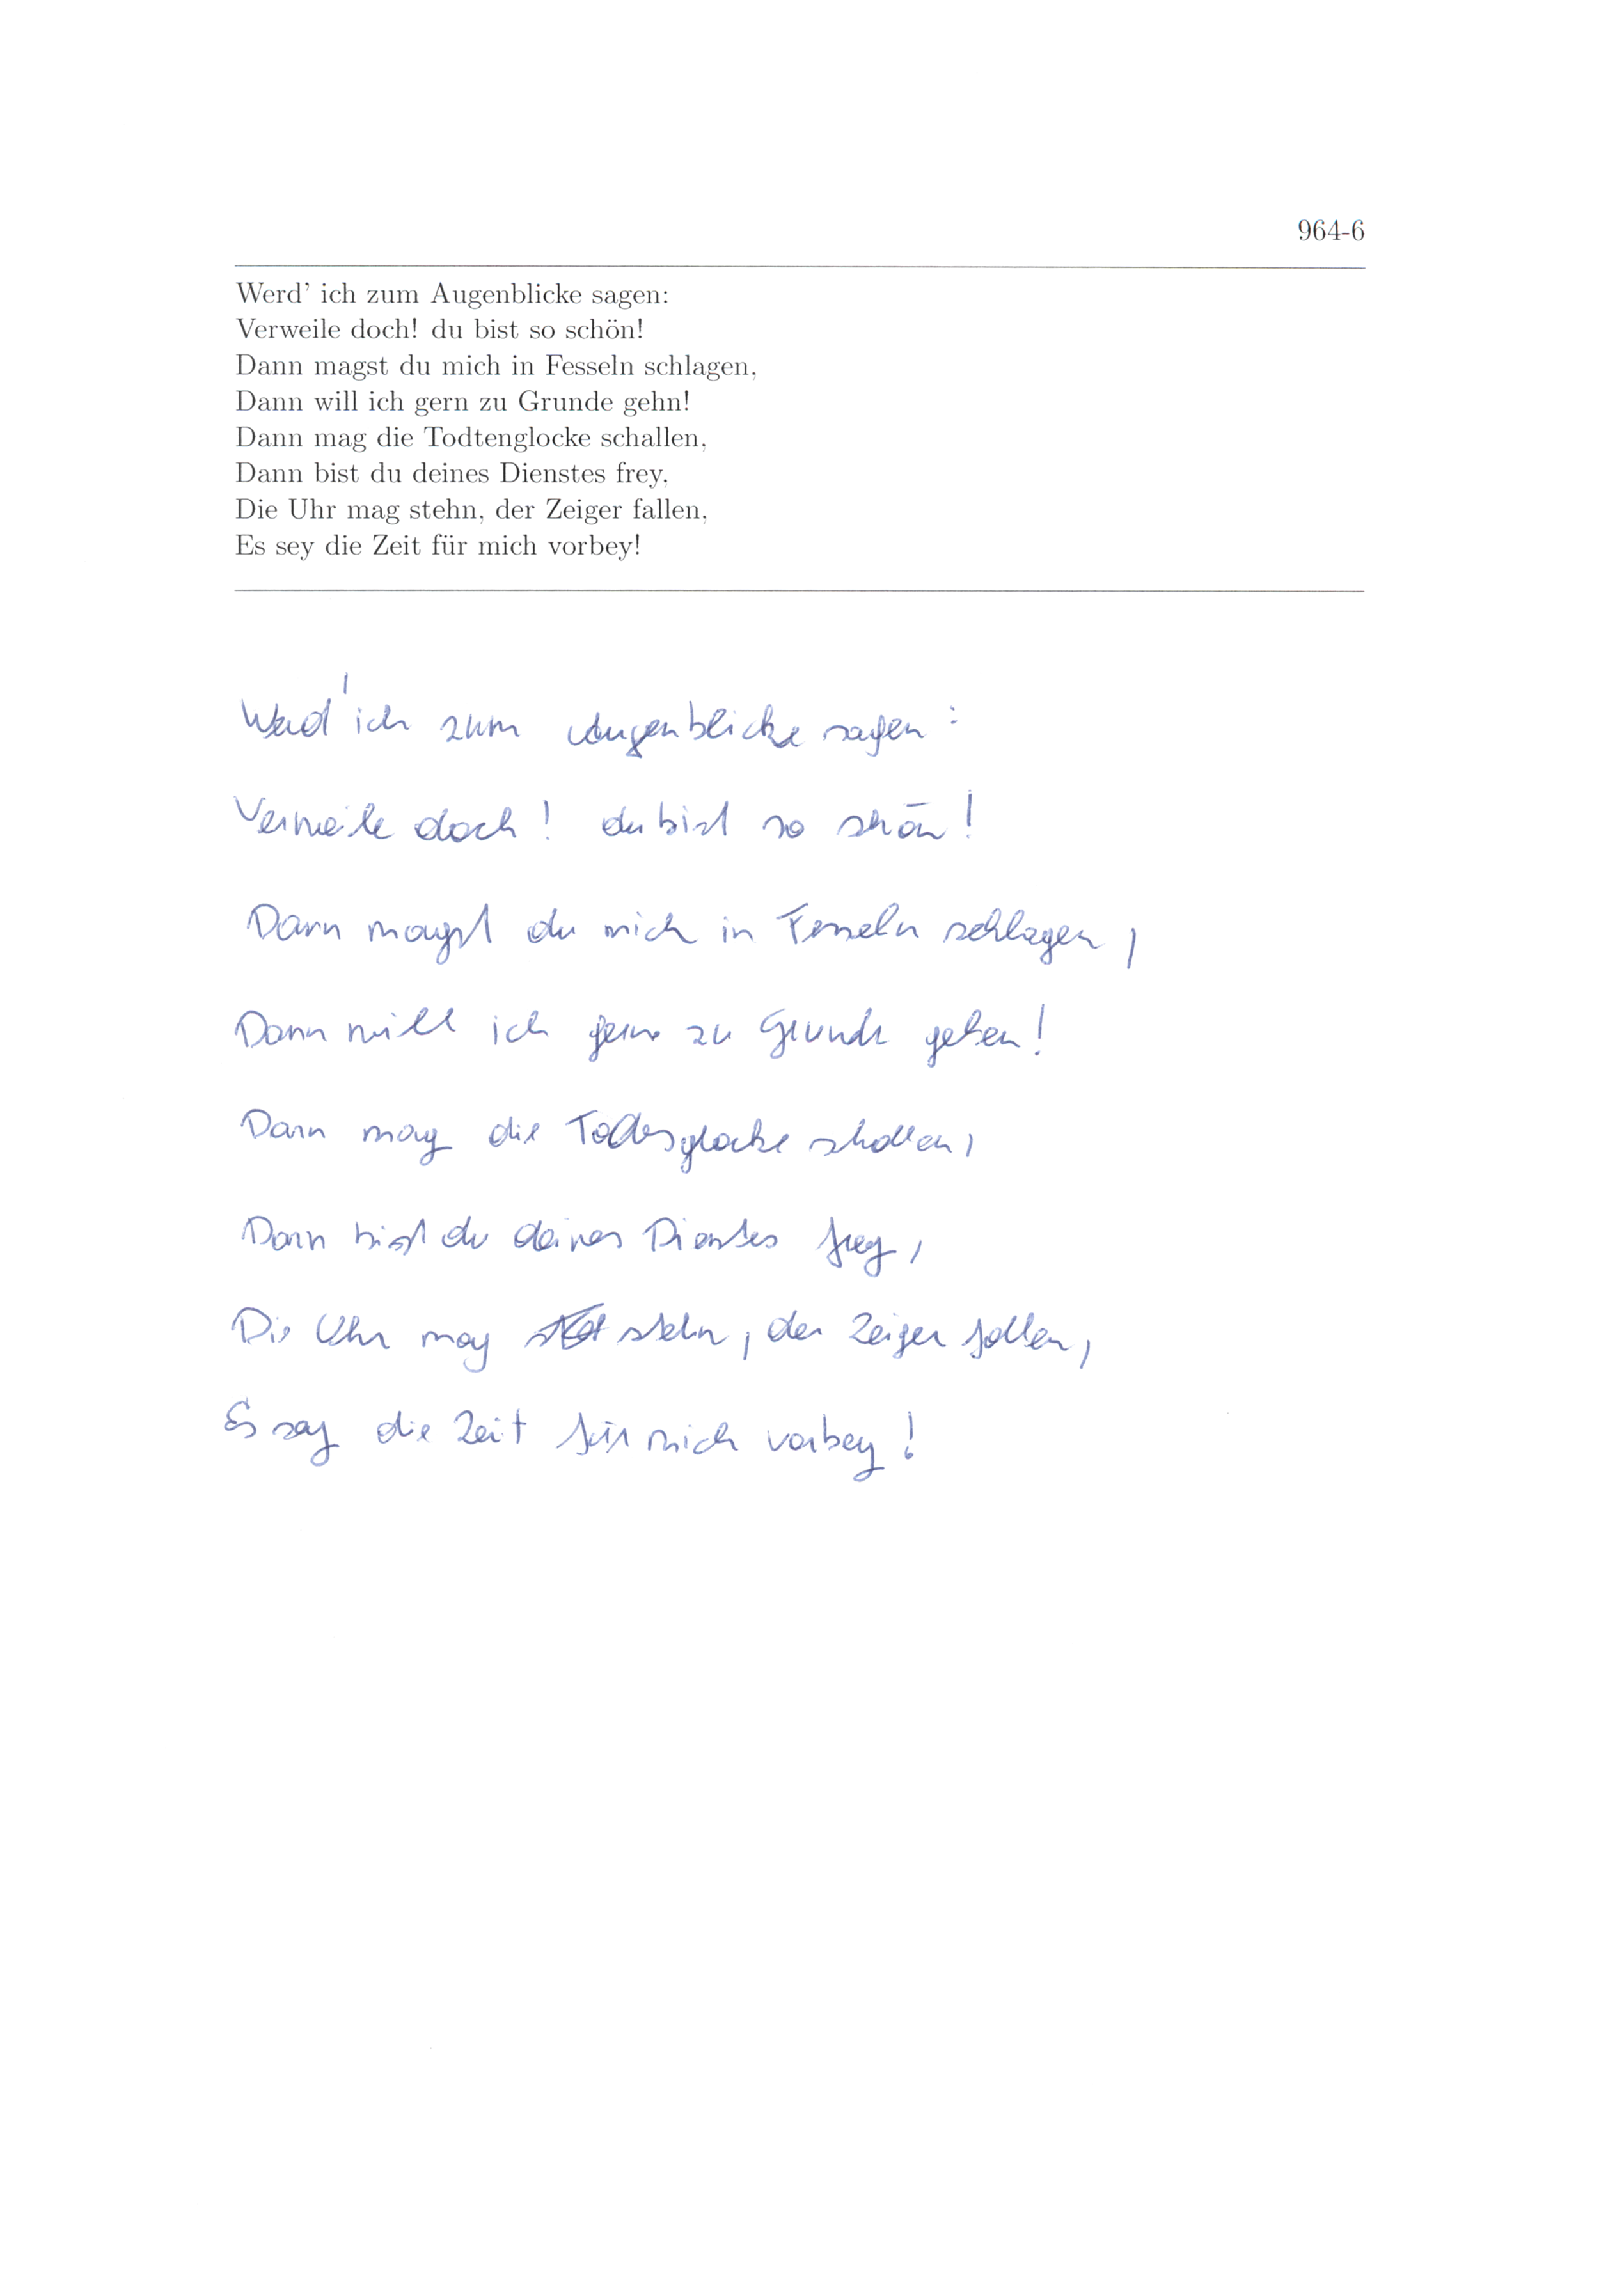 964-6
Werd' ich zum Augenblicke sagen:
Verweile doch! du bist so schön!
Dann magst du mich in Fesseln schlagen,
Dann will ich gern zu Grunde gehn!
Dann mag die Todtenglocke schallen,
Dann bist du deines Dienstes frey,
Die Uhr mag stehn, der Zeiger fallen,
Es sey die Zeit für mich vorbey!
Werd' ich zum Augenblicke sagen:
Verweile doch! du bist so schön!
Dann magst du mich in Fesseln schlagen,
Dann will ich gerne zu Grunde gehen!
Dann mag die Todesglocke schallen,
Dann bist du deines Dienstes frey,
Die Uhr mag stehn, der Zeiger fallen,
Es sey die Zeit für mich vorbey!